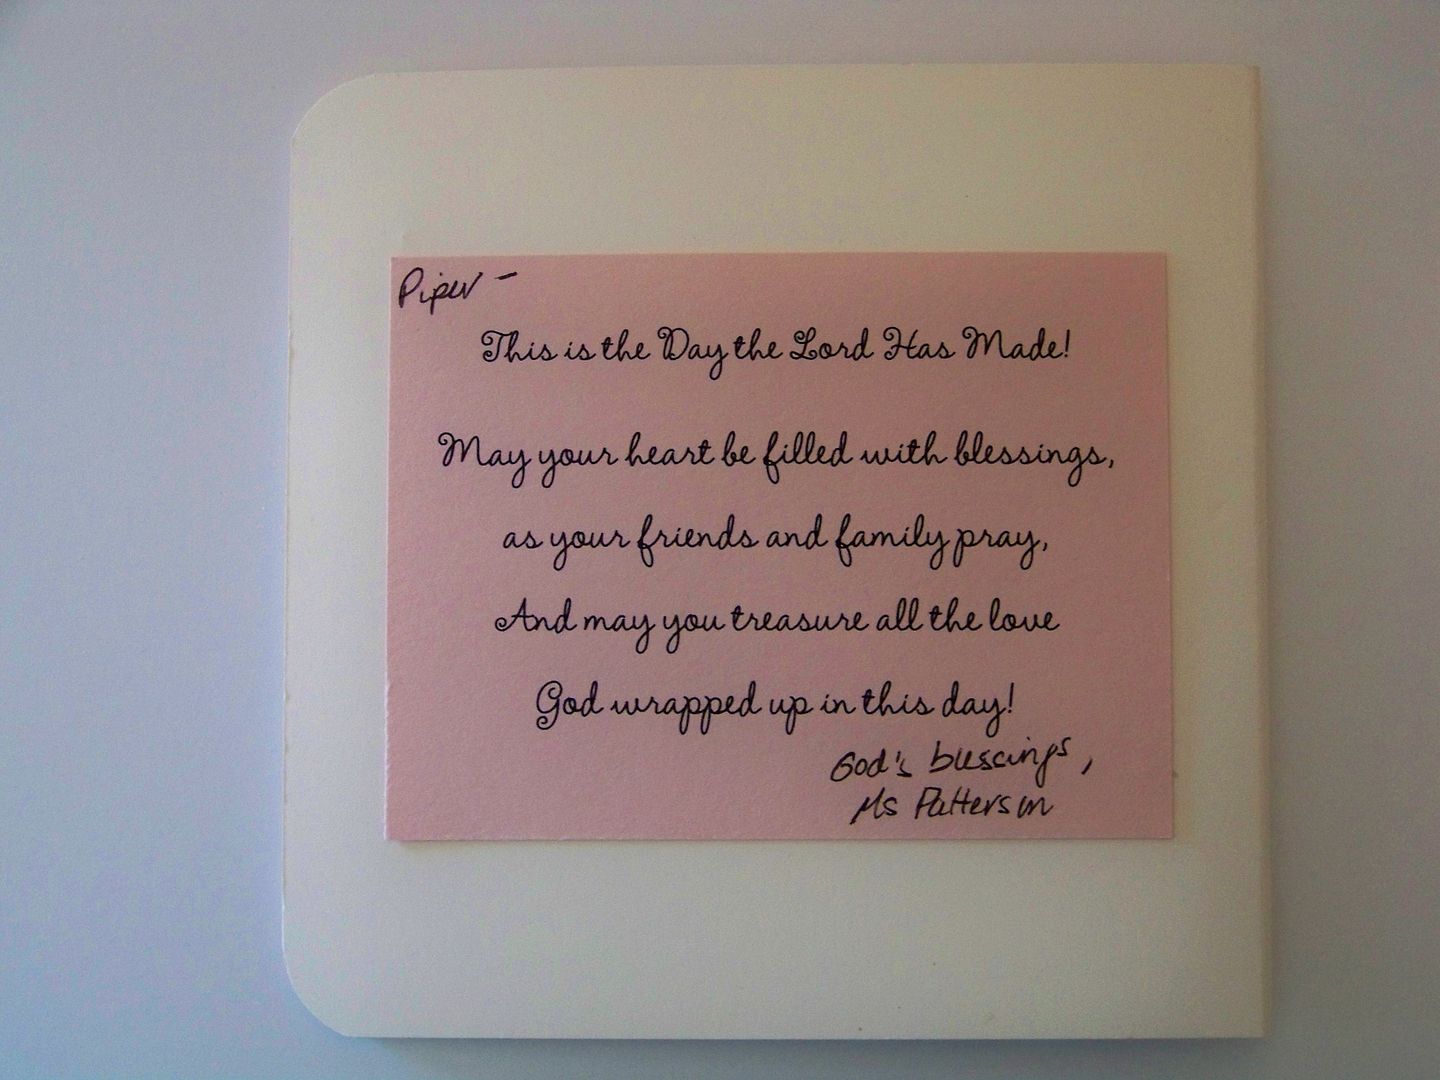 Piper -
This is the Day the Lord Has Made!
May your heart be filled with blessings,
as your friends and family pray,
And may you treasure all the love
God wrapped up in this day!
God's blessings,
Ms Patterson